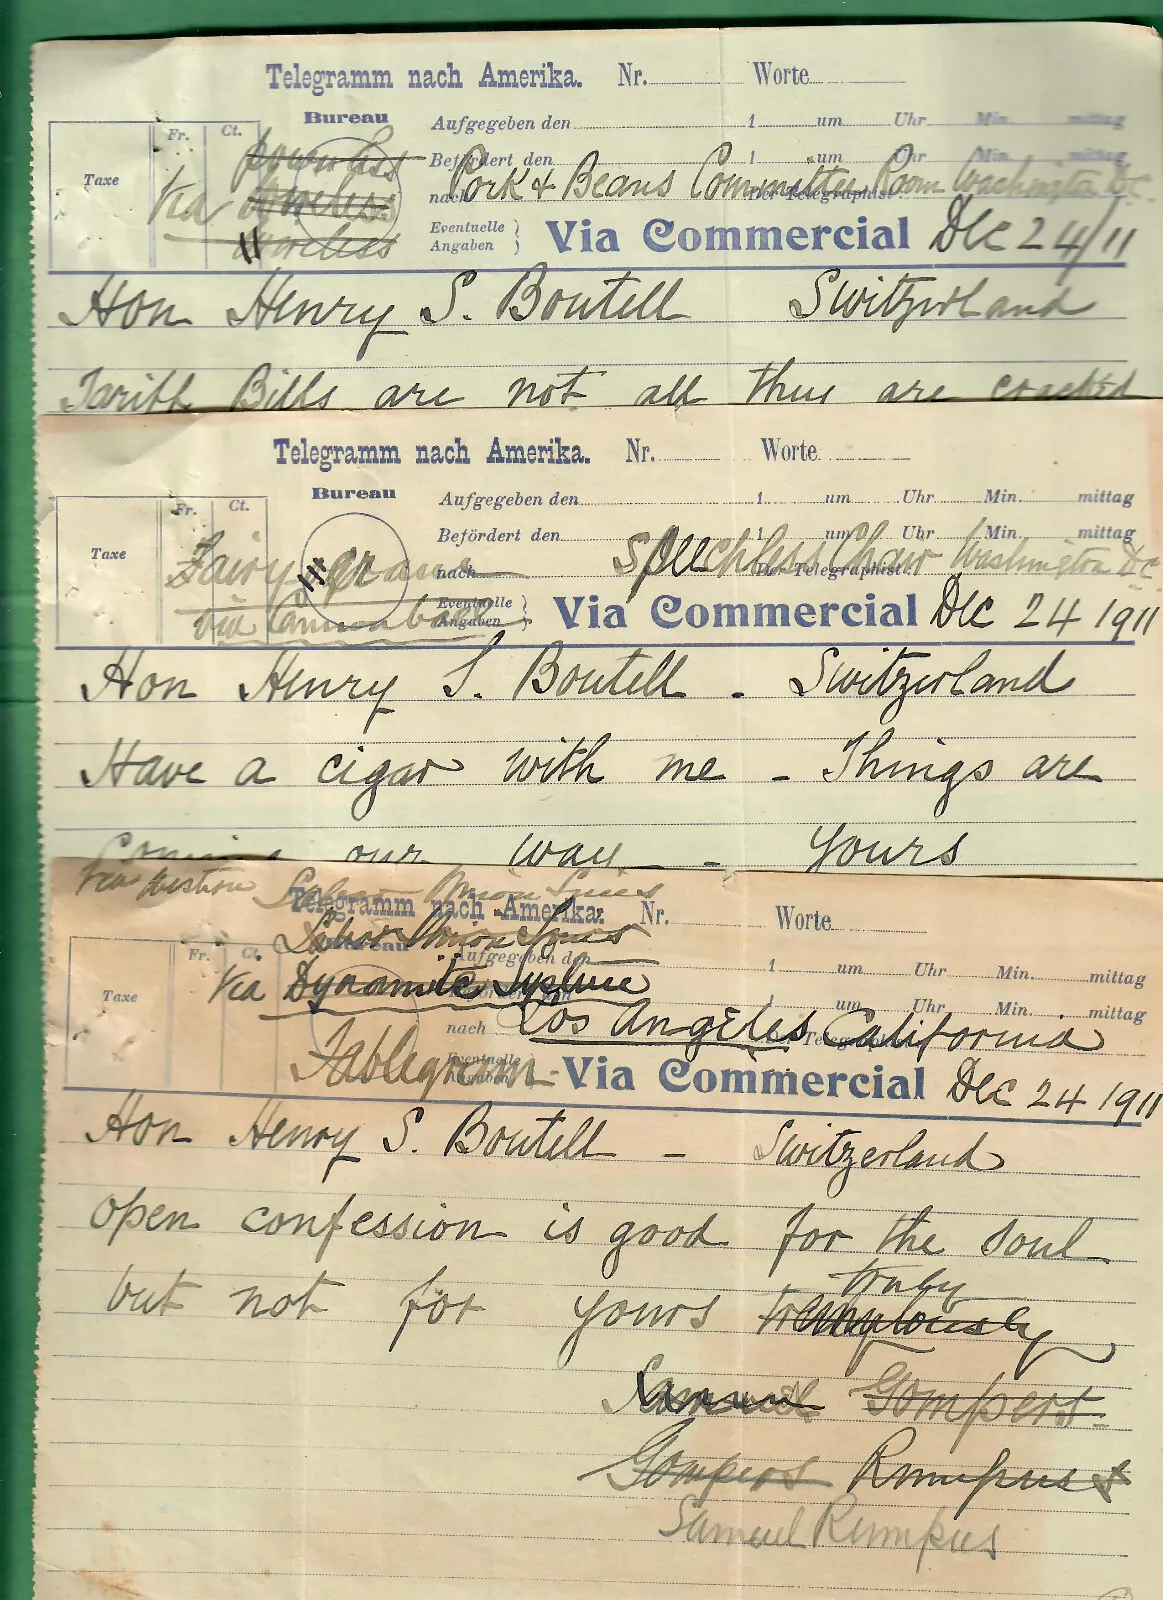 Telegramm nach Amerika. Nr. Worte
Bureau
Aufgegeben den 1 um Uhr Min. mittag
Fr. Ct.
Taxe
powerless
Befördert den 1 um Uhr Min. mittag
Via wireless
nach Pork & Beans Committee Room Washington D.C.
Der Telegraphist:
wireless
Eventuelle Angaben } Via Commercial Dec 24/11
Hon Henry S. Boutell Switzerland
Tariff Bills are not all they are cracked
Telegramm nach Amerika. Nr. Worte
Bureau
Aufgegeben den 1 um Uhr Min. mittag
Fr. Ct.
Taxe
Befördert den 1 um Uhr Min. mittag
Fairy gram
nach Speechless Chair Washington D.C.
Der Telegraphist:
via Cannon ball
Eventuelle Angaben } Via Commercial Dec 24 1911
Hon Henry S. Boutell - Switzerland
Have a cigar with me - Things are
Coming our way - Yours
Via Labor Union Lines
Telegramm nach Amerika. Nr. Worte
Labor Union Lines
Bureau
Aufgegeben den 1 um Uhr Min. mittag
Fr. Ct.
Via Dynamite System
Taxe
Befördert den 1 um Uhr Min. mittag
nach Los Angeles California
Der Telegraphist:
Fablegram -
Eventuelle Angaben Via Commercial Dec 24 1911
Hon Henry S. Boutell - Switzerland
open confession is good for the soul
but not for yours tremulously truly
Samuel Gompers
Gompers Rumpus
Samuel Rumpus